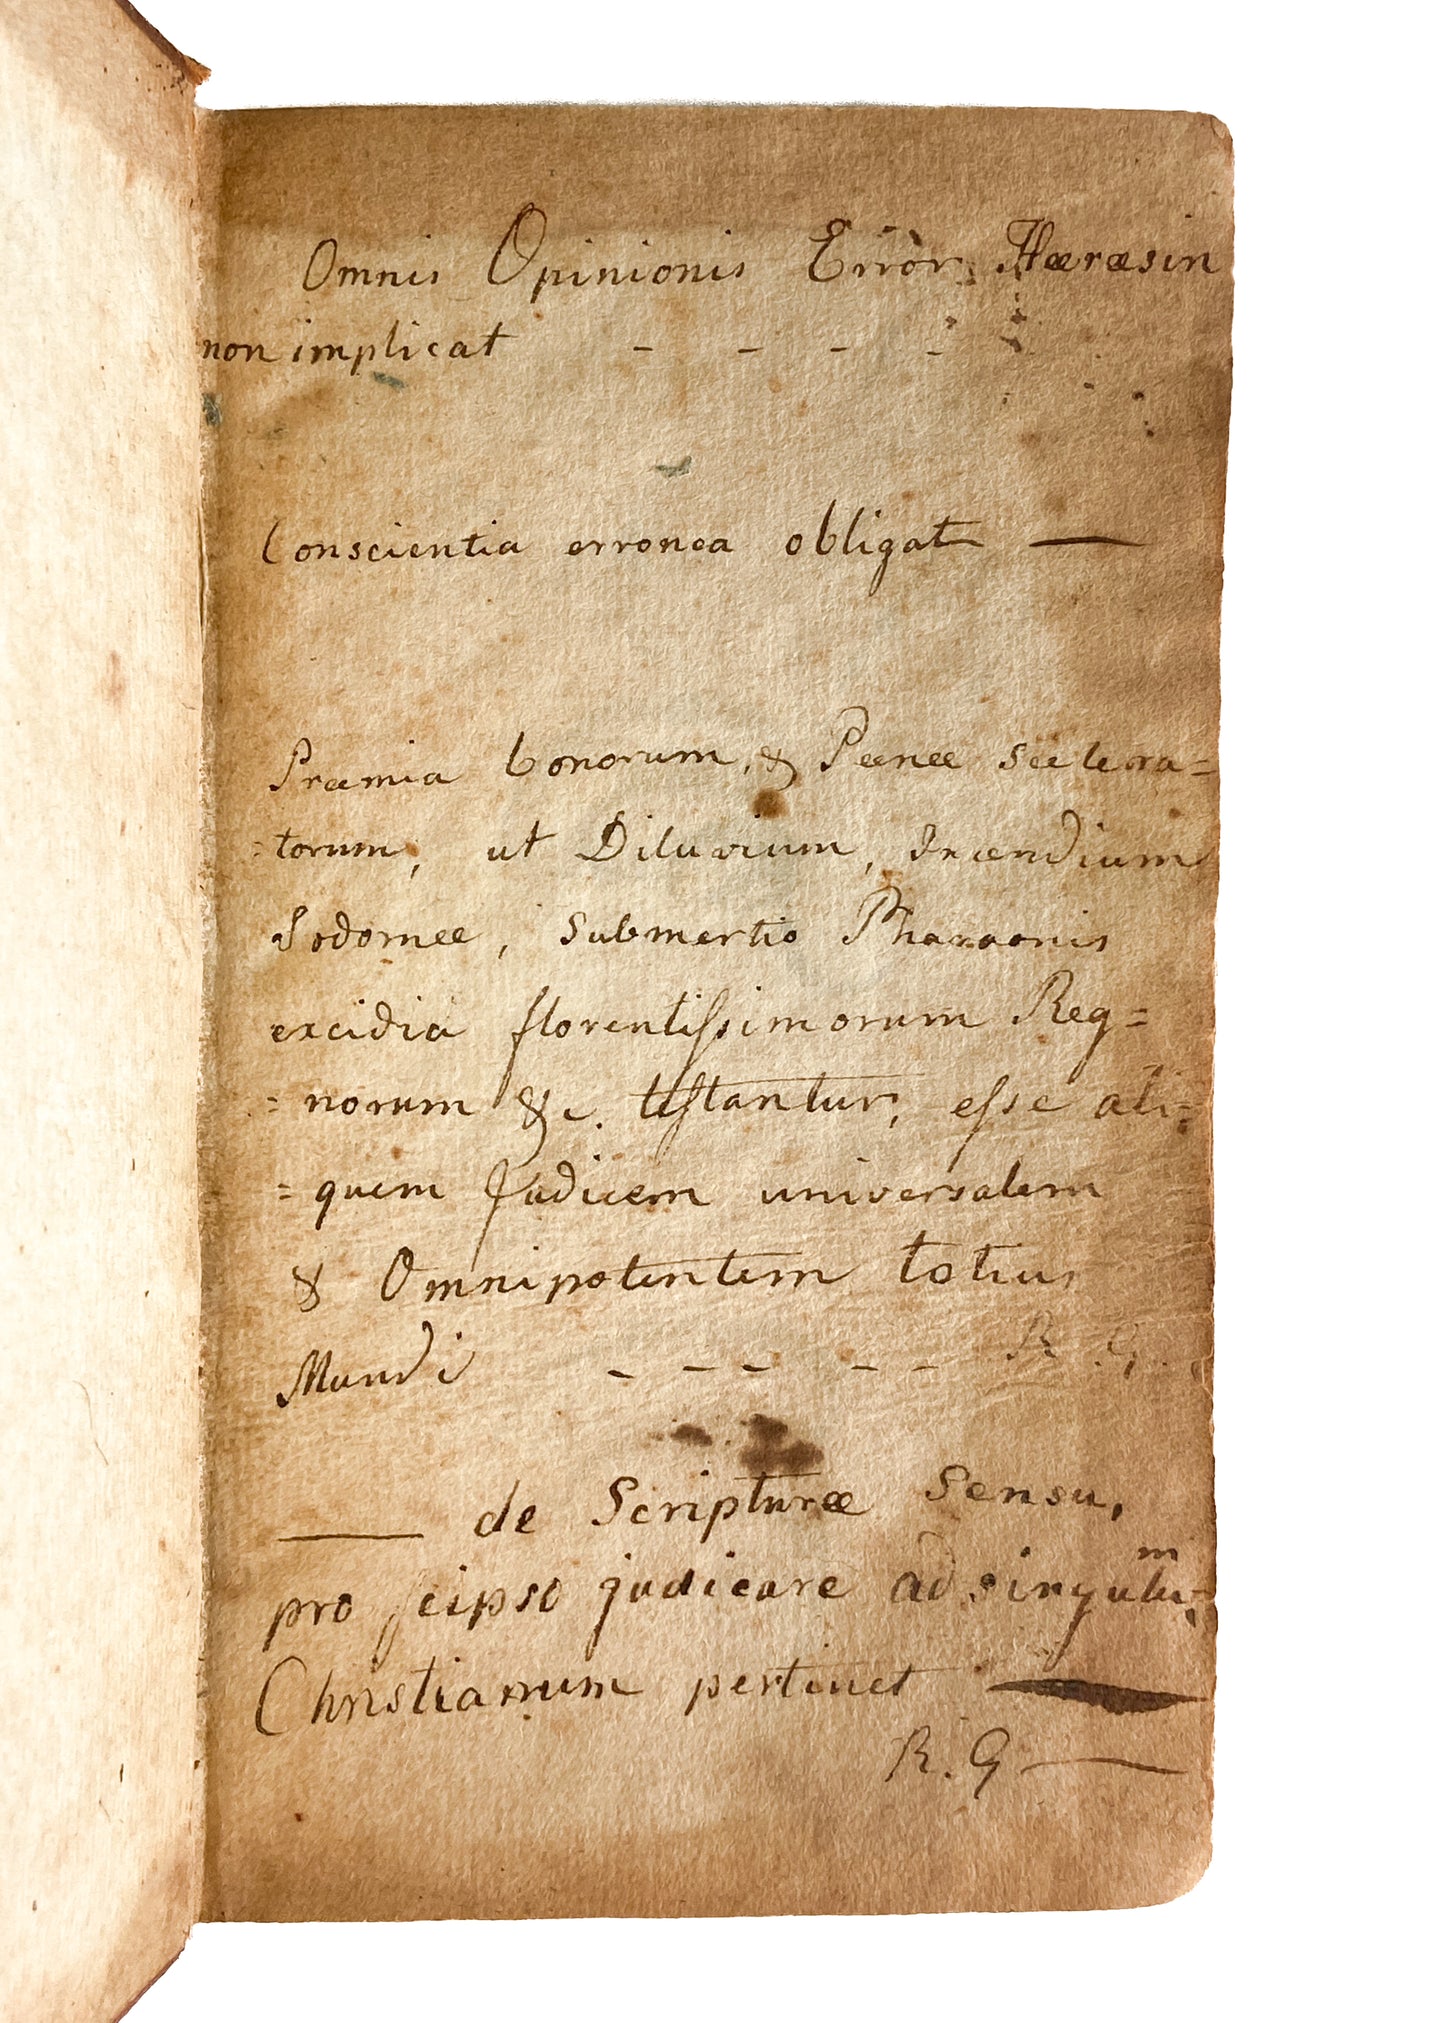 Omnis Opinionis Error Hæræsin
non implicat - - - -
Conscientia erronea obligat —
Præmia bonorum, & Pœnæ scelera=
=torum, ut Diluvium, Incendium
Sodomæ, Submersio Pharaonis
excidia florentissimorum Reg=
=norum &c. testantur, esse ali=
=quem Judicem universalem
& Omnipotentem totius
Mundi - - - - - R. G.
— de Scripturæ Sensu,
pro seipso judicare ad singulu^m
Christianum pertinet —
R. G —